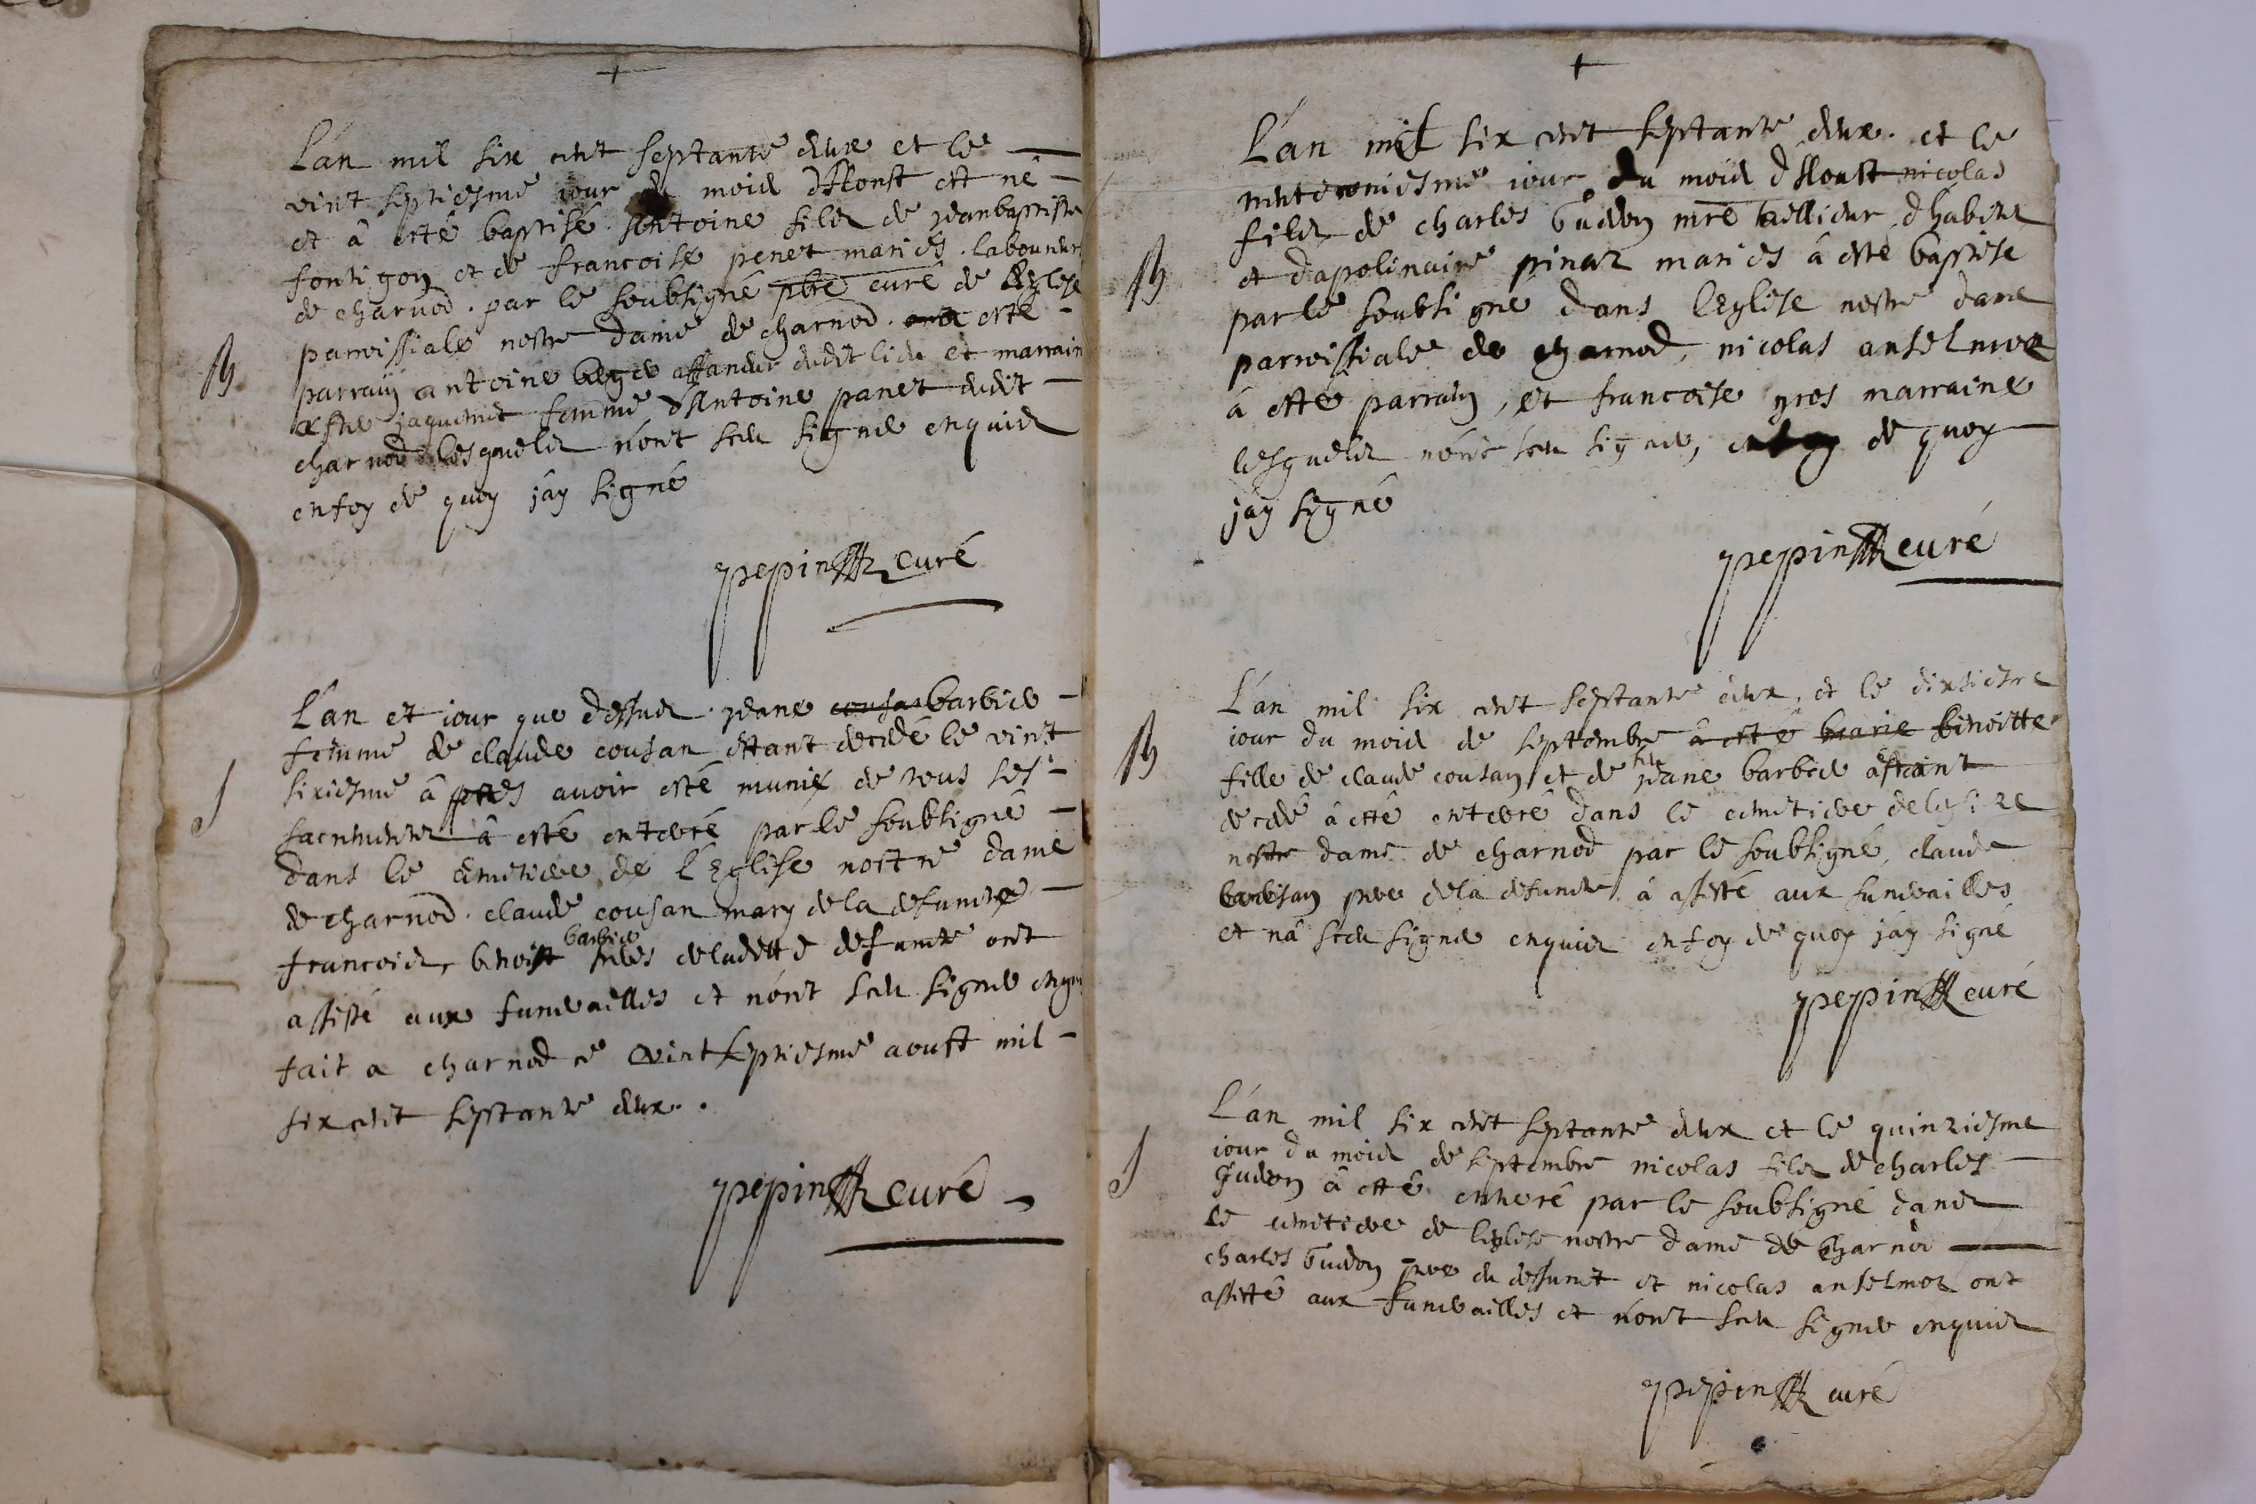 L'an mil six cent septante deux et le
vint septiesme iour du moid d'Aoust est né
et â esté baptisé Antoine filz de Jeanbaptiste
fontigon et de francoise penet mariés laboureurs
de charnod par le soubsigné pbre curé de l'Eglise
parroissiale nostre dame de charnod esté
parrain antoine affaneur dudit lieu et marraine
jaquemet femme d'Antoine panet dudit
charnod lesquelz n'ont sceu signer enquis
enfoy de quoy j'ay signé
B
pepin curé
L'an et iour que dessus Jeane cousan barbier
femme de claude cousan estant decedé le vint
sixiesme â pres auoir esté munix de tous ses
sacrements â esté enterré par le soubsigné
dans le cimetiere de l'Eglise nostre dame
de charnod. claude cousan mary de la defuncte
barbier
francois benoist freres deladette defuncte ont
assisté aux funerailles et n'ont sceu signer enquis
fait a charnod ce vint septiesme aoust mil
six cent septante deux.
S
pepin curé
L'an mil six cent septante deux. et le
iour du moid d'Aoust nicolas
filz de charles Guden mre taillieur d'habits
et d'apolinaire pinar mariés â esté baptisé
par le soubsigné dans l'Eglise nostre dame
parroissiale de charnod, nicolas anselmoz
â esté parrain, et francoise gros marraine
lesquelz n'ont sceu signer, enfoy de quoy
j'ay signé
B
pepin curé
L'an mil six cent septante deux, et le dixsiesme
iour du moid de septembre â esté marie benoitte
fille de claude cousan et de Jeane barbier estant
decedé â esté enterré dans le cimetiere de leglise
nostre dame de charnod par le soubsigné, claude
cousan pere de la defuncte â assisté aux funerailles
et n'â sceu signer enquis enfoy de quoy j'ay signé
B
pepin curé
L'an mil six cent septante deux et le quinziesme
iour du moid de septembre nicolas filz de charles
Guden â esté enterré par le soubsigné dans
le cimetiere de leglise nostre dame de charnod
charles Guden pere du deffunct et nicolas anselmoz ont
assisté aux funerailles et n'ont sceu signer enquis
S
pepin curé